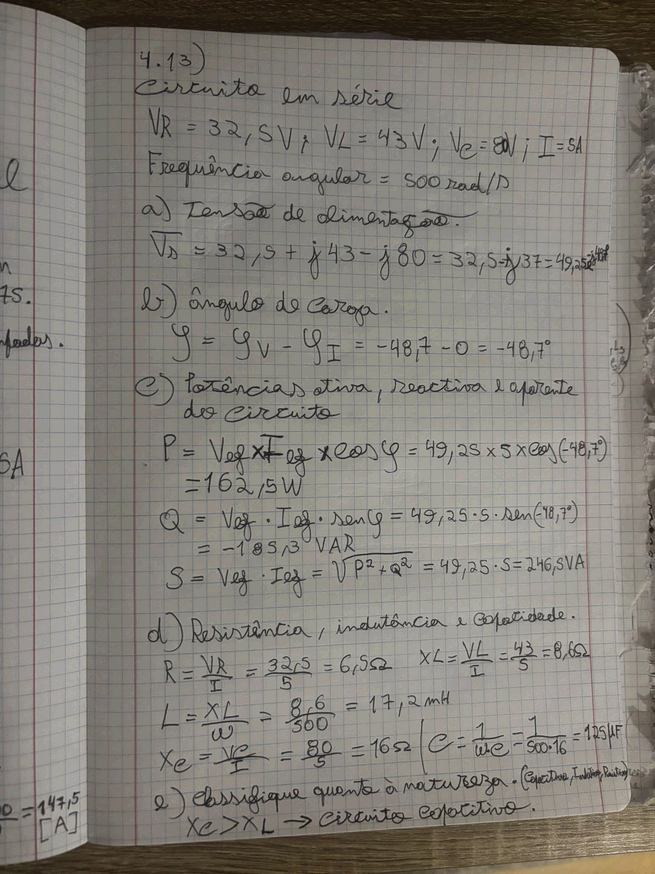 l
n
75.
mpadas.
5A
= 147,5
[A]
4.13)
Circuito em série
VR = 32,5V; VL = 43V; VC = 80V; I = 5A
Frequência angular = 500 rad/s
a) Tensão de alimentação.
Vs = 32,5 + j43 - j80 = 32,5 - j37 = 49,25
b) ângulo de carga.
φ = φV - φI = -48,7 - 0 = -48,7°
c) Potências ativa, reactiva e aparente
do circuito
P = Vef × Ief × cos φ = 49,25 × 5 × cos(-48,7°)
= 162,5W
Q = Vef · Ief · sen φ = 49,25 · 5 · sen(-48,7°)
= -185,3 VAR
S = Vef · Ief = √P² + Q² = 49,25 · 5 = 246,5VA
d) Resistência, indutância e capacidade.
R = VR/I = 32,5/5 = 6,5Ω XL = VL/I = 43/5 = 8,6Ω
L = XL/ω = 8,6/500 = 17,2 mH
Xc = Vc/I = 80/5 = 16Ω | C = 1/ωc = 1/500·16 = 125μF
e) Classifique quanto à natureza. (Capacitivo, Indutivo,
Xc > XL → Circuito capacitivo.